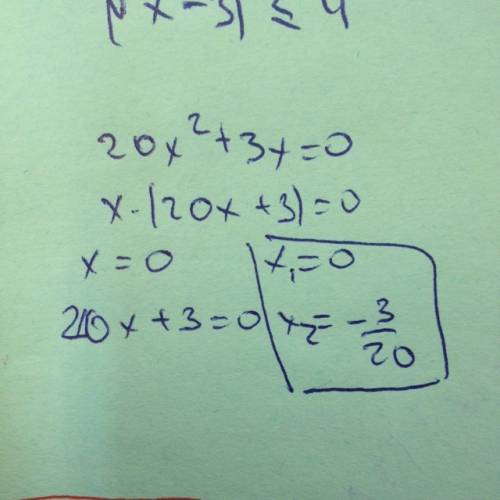 |x-3| ≤ 4
20x²+3x=0
x·(20x+3)=0
x=0
20x+3=0
x₁=0
x₂=-3/20